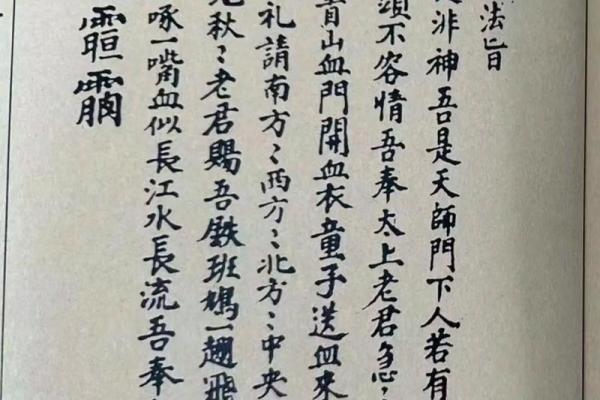 法旨
非神吾是天師門下人若有
須不容情吾奉太上老君急〻
山血門開血衣童子送血來
礼請南方〻西方〻北方〻中央
秋〻老君賜吾鉄班鳩一趐飛
啄一嘴血似長江水長流吾奉